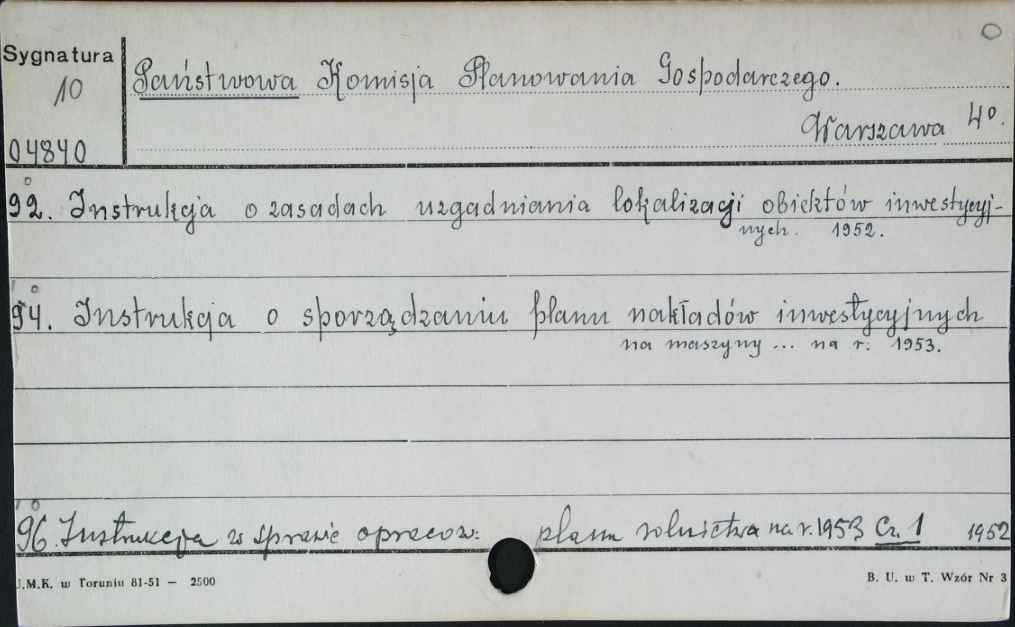 Sygnatura
10
04840
Państwowa Komisja Planowania Gospodarczego.
Warszawa 4°.
92. Instrukcja o zasadach uzgadniania lokalizacji obiektów inwestycyj-
nych. 1952.
94. Instrukcja o sporządzaniu planu nakładów inwestycyjnych
na maszyny ... na r. 1953.
96. Instrukcja w sprawie opracow: planu rolnictwa na r. 1953 Cz. 1 1952
J.M.K. w Toruniu 81-51 — 2500
B. U. w T. Wzór Nr 3